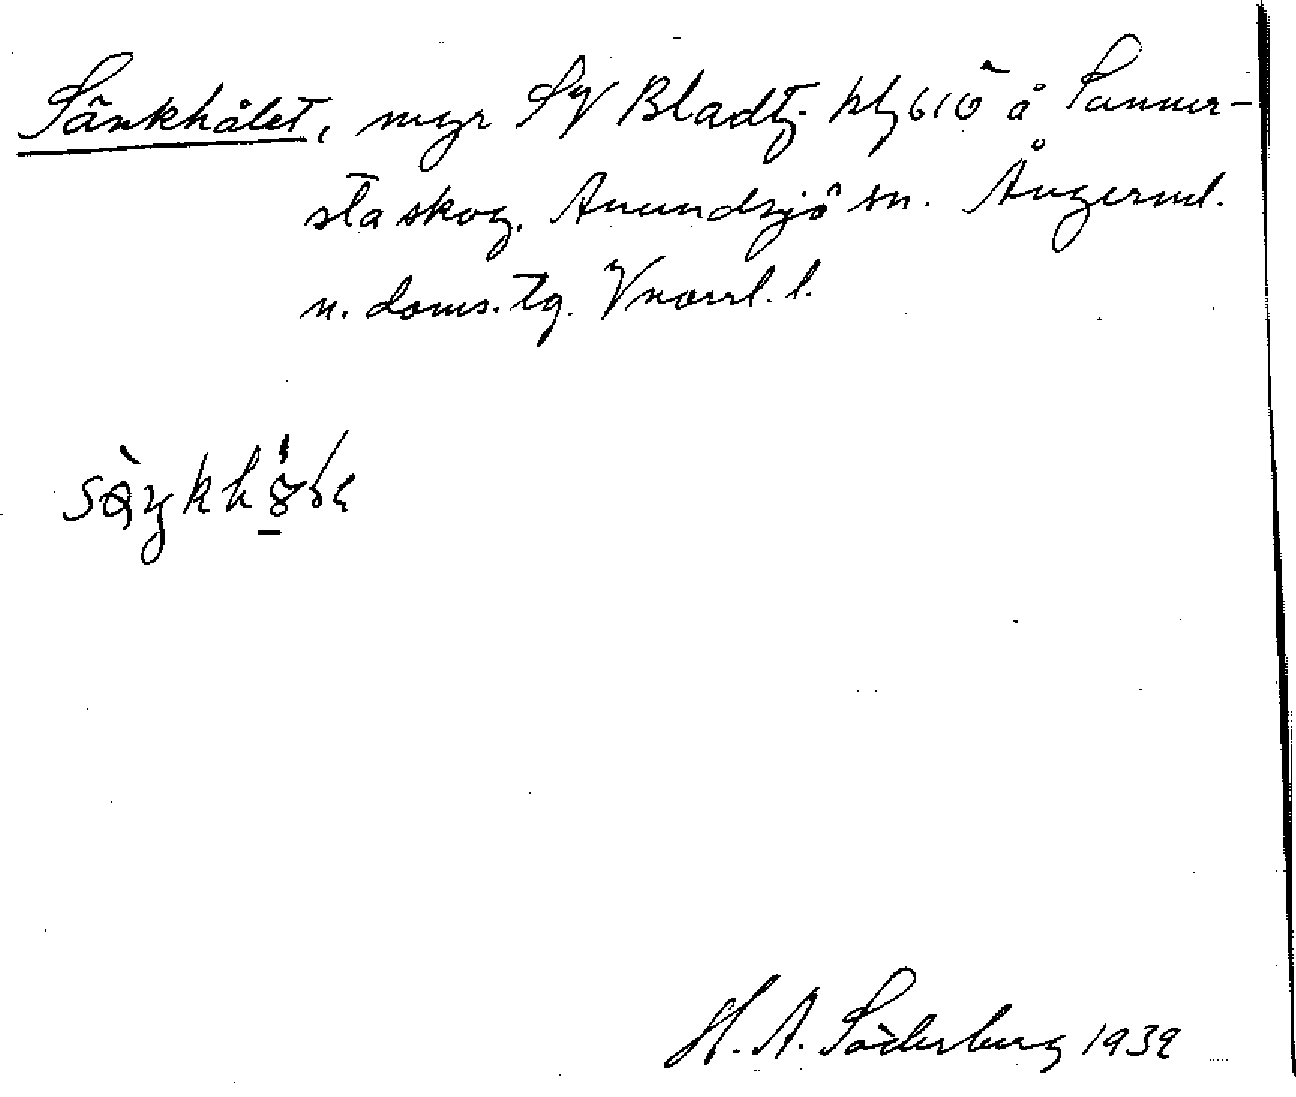 Sänkhålet, myr SV Bladtj. hlg 610 å Sanner-
sta skog. Anundsjö sn. Ångerml.
n. doms. tg. Vnorrl. l.
H. A. Söderberg 1939